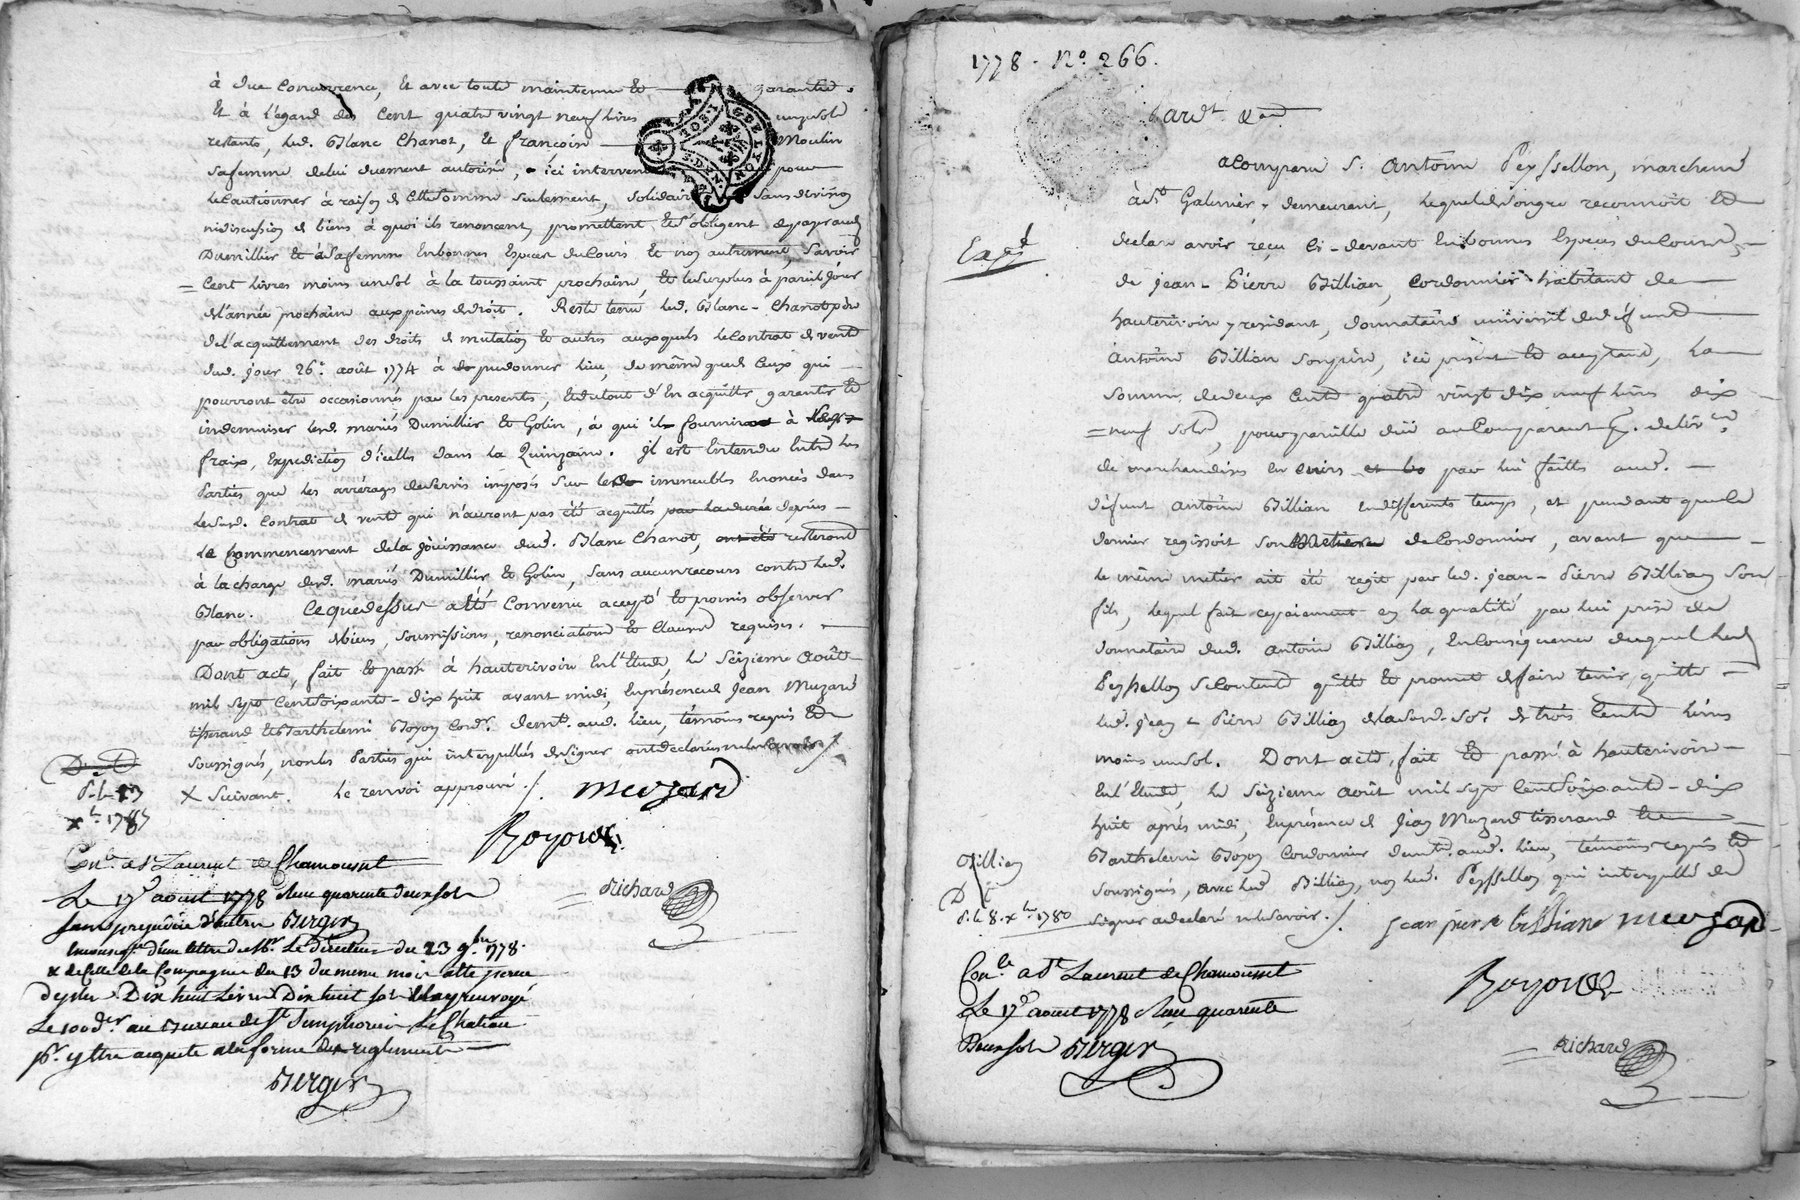 à due concurrence, et avec toute maintenue et garantie.
Et à l'égard des cent quatre vingt neuf livres un sol
restants, led. Blanc Chanot, et françoise Moulin
sa femme de lui duement autorisée, ici intervenue pour
le cautionner à raison de cette somme seulement, solidairement sans division
ni discussion de biens à quoi ils renoncent, promettent et s'obligent de payer aud.
Dumillier et à sa femme en bonnes espèces du cours et non autrement, savoir
= cent livres moins un sol à la toussaint prochaine, et le surplus à pareil jour
de l'année prochaine aux peines de droit. Reste tenu led. Blanc-Chanot père
de l'acquittement des droits de mutation et autres auxquels le contrat de vente
dud. jour 26e. août 1774 a dû donner lieu, de même que de ceux qui
pourront être occasionnés par les présentes, et du tout d'en acquitter garentir et
indemniser lesd. mariés Dumillier et Golin, à qui il fournira à
fraix, expédition d'icelles dans la quinzaine. Il est entendu entre les
Parties que les arrérages de servis imposés sur les immeubles énoncés dans
led. contrat de vente qui n'auront pas été acquittés par la durée depuis
le commencement de la jouissance dud. Blanc Chanot, ont été resteront
à la charge desd. mariés Dumillier et Golin, sans aucun recours contre led.
Blanc. Ce que dessus a été convenu accepté et promis observer
par obligations de biens, soumissions, renonciations et clauses requises.
Dont acte, fait et passé à hauterivoire en l'Etude, le seizieme août
mil sept cent soixante-dix huit avant midi, en présence de Jean Muzard
tisserand et Barthelemi Boyon cord.r demt. aud. lieu, témoins requis et
soussignés, non les Parties qui interpellées de signer ont déclaré ne le savoir ./.
x suivant. le renvoi approuvé ./. muzard
D. D
P. L. 13
x.bre 1783
Boyon
Richard
Con.le a St Laurent de Chamousset
Le 17e aoust 1778 Reçu quarente deux sols
sans prejudice d'autre Berger
En conseq.ce d'une lettre de Mr. Le directeur du 23 9bre 1778.
x de Celle de la Compagnie du 13 du meme mois
Dix huit Livres Dix huit sols
Le 100.e dr au Bureau de St Simphorien Le Chateau
pr. y être acquité a la forme des reglements
Berger
1778. No. 266.
gard.t &.an
A Comparu S. Antoine Peyssellon, marchand
à St. Galmier y demeurant, lequel de son gré reconnoît et
déclare avoir reçu ci-devant en bonnes espèces du cours,
Exp.é
de jean-Pierre Billian, cordonnier habitant de
hauterivoire y residant, donnataire universel de défunt
Antoine Billian son père, ici présent et acceptant, la
somme de deux cent quatre vingt dix neuf livres dix
= neuf sols, pour pareille due au Comparant
de marchandises en cuirs et be par lui faites aud.
défunt Antoine Billian en différents temps, et pendant que le
dernier régissoit son métier de cordonnier, avant que
le même métier ait été régit par led. jean-Pierre Billian son
fils, lequel fait ce paiement en la qualité par lui prise de
donnataire dud. Antoine Billian, en conséquence duquel led.
Peyssellon se contente quitte et promet de faire tenir quitte
led. jean-Pierre Billian de la susd. so.e de trois cents livres
moins un sol. Dont acte, fait et passé à hauterivoire
en l'Etude, le seizieme août mil sept cent soixante-dix
huit après midi, en présence de Jean Muzard tisserand et
Barthelemi Boyon cordonnier demt. aud. lieu, témoins requis et
soussignés, avec led. Billian, non led. Peyssellon qui interpellé de
signer a déclaré ne le savoir ./. jean pierre billiand muzard
Billian
D
P. L. 8. x.bre 1780
Boyon
Richard
Con.le a St Laurent de Chamousset
Le 17e aoust 1778 Reçu quarente
Deux sols Berger